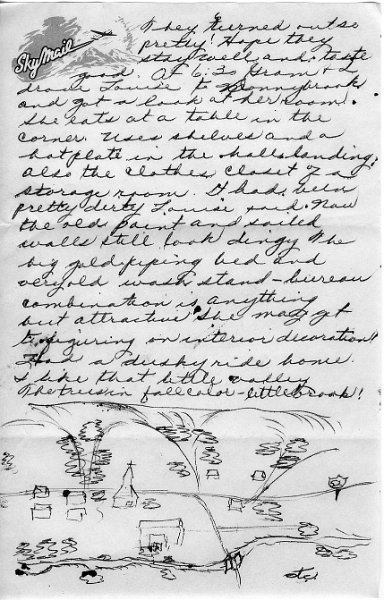 Sky Mail
They turned out so
pretty! Hope they
stay well and taste
good. At 6:30 Gram & I
drove Louise to Bonnybrook
and got a look at her room.
She eats at a table in the
corner. Uses shelves and a
hotplate in the halls landing,
also the clothes closet & a
storage room. It had been
pretty dirty Louise said. Now
the old paint and soiled
walls still look dingy. The
big gold piping bed and
very old wash stand-bureau
combination is anything
but attractive. She may get
to figuring on interior decoration!
Had a dusky ride home.
I like that little valley.
The trees in fall color - little brook!
etc.